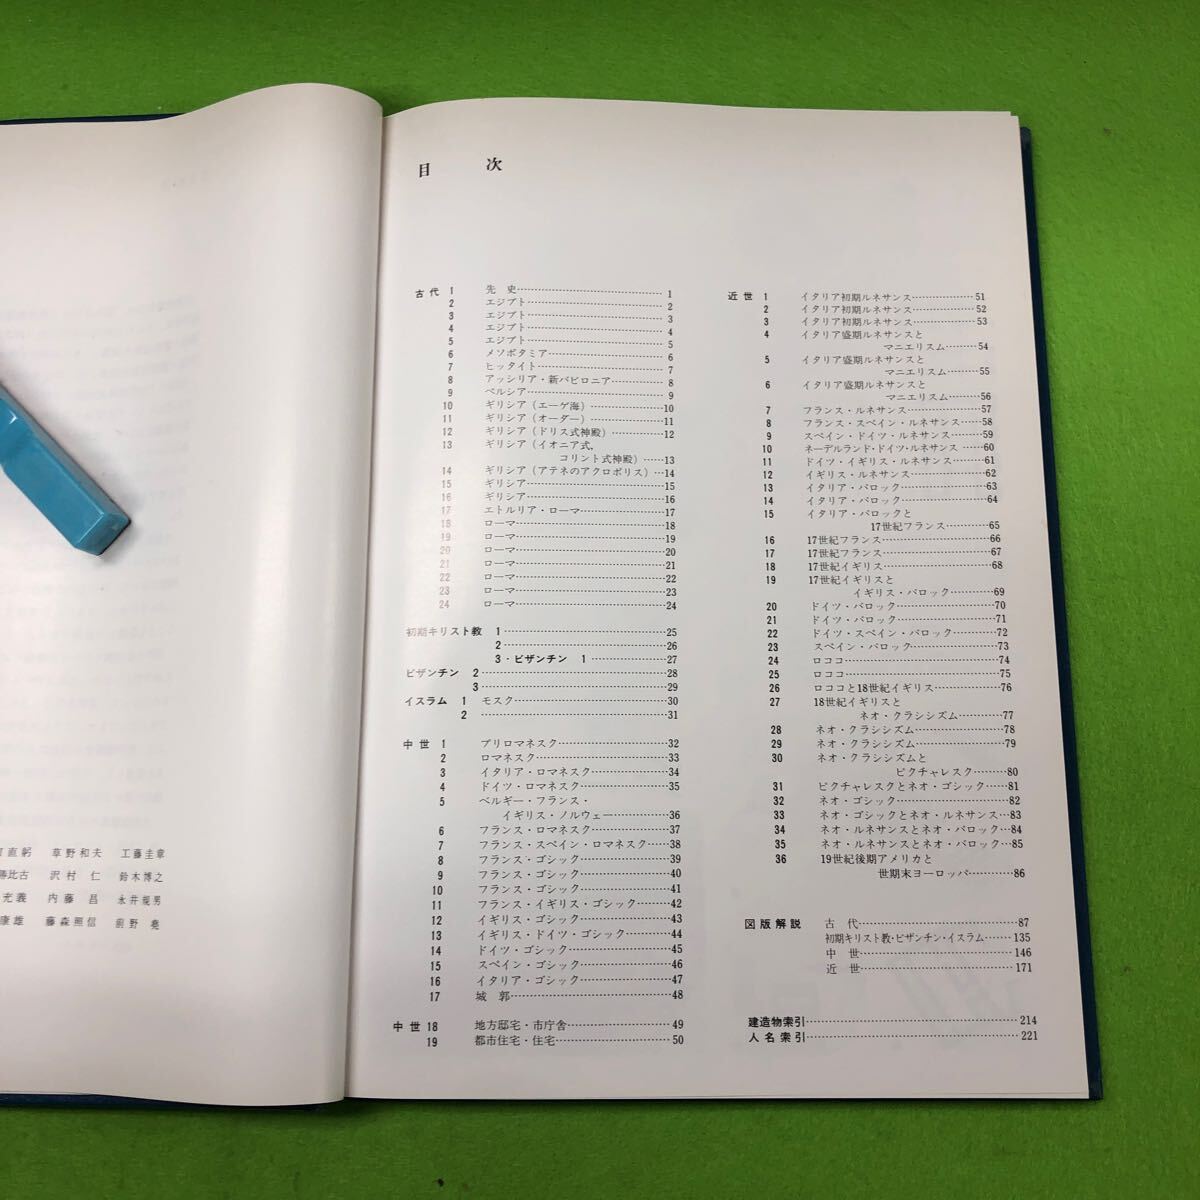 直躬　草野和夫　工藤圭章
勝比古　沢村　仁　鈴木博之
充義　内藤　昌　永井規男
康雄　藤森照信　前野　堯
目　次
古代 1　先史…………1
2　エジプト…………2
3　エジプト…………3
4　エジプト…………4
5　エジプト…………5
6　メソポタミア…………6
7　ヒッタイト…………7
8　アッシリア・新バビロニア…………8
9　ペルシア…………9
10　ギリシア（エーゲ海）…………10
11　ギリシア（オーダー）…………11
12　ギリシア（ドリス式神殿）…………12
13　ギリシア（イオニア式，
コリント式神殿）……13
14　ギリシア（アテネのアクロポリス）…14
15　ギリシア…………15
16　ギリシア…………16
17　エトルリア・ローマ…………17
18　ローマ…………18
19　ローマ…………19
20　ローマ…………20
21　ローマ…………21
22　ローマ…………22
23　ローマ…………23
24　ローマ…………24
初期キリスト教 1…………25
2…………26
3・ビザンチン 1…………27
ビザンチン 2…………28
3…………29
イスラム 1　モスク…………30
2　…………31
中世 1　プリロマネスク…………32
2　ロマネスク…………33
3　イタリア・ロマネスク…………34
4　ドイツ・ロマネスク…………35
5　ベルギー・フランス・
イギリス・ノルウェー…………36
6　フランス・ロマネスク…………37
7　フランス・スペイン・ロマネスク……38
8　フランス・ゴシック…………39
9　フランス・ゴシック…………40
10　フランス・ゴシック…………41
11　フランス・イギリス・ゴシック…………42
12　イギリス・ゴシック…………43
13　イギリス・ドイツ・ゴシック…………44
14　ドイツ・ゴシック…………45
15　スペイン・ゴシック…………46
16　イタリア・ゴシック…………47
17　城郭…………48
中世 18　地方邸宅・市庁舎…………49
19　都市住宅・住宅…………50
近世 1　イタリア初期ルネサンス…………51
2　イタリア初期ルネサンス…………52
3　イタリア初期ルネサンス…………53
4　イタリア盛期ルネサンスと
マニエリスム………54
5　イタリア盛期ルネサンスと
マニエリスム………55
6　イタリア盛期ルネサンスと
マニエリスム………56
7　フランス・ルネサンス…………57
8　フランス・スペイン・ルネサンス……58
9　スペイン・ドイツ・ルネサンス………59
10　ネーデルランド・ドイツ・ルネサンス……60
11　ドイツ・イギリス・ルネサンス………61
12　イギリス・ルネサンス…………62
13　イタリア・バロック…………63
14　イタリア・バロック…………64
15　イタリア・バロックと
17世紀フランス…………65
16　17世紀フランス…………66
17　17世紀フランス…………67
18　17世紀イギリス…………68
19　17世紀イギリスと
イギリス・バロック…………69
20　ドイツ・バロック…………70
21　ドイツ・バロック…………71
22　ドイツ・スペイン・バロック…………72
23　スペイン・バロック…………73
24　ロココ…………74
25　ロココ…………75
26　ロココと18世紀イギリス…………76
27　18世紀イギリスと
ネオ・クラシシズム………77
28　ネオ・クラシシズム…………78
29　ネオ・クラシシズム…………79
30　ネオ・クラシシズムと
ピクチャレスク………80
31　ピクチャレスクとネオ・ゴシック……81
32　ネオ・ゴシック…………82
33　ネオ・ゴシックとネオ・ルネサンス…83
34　ネオ・ルネサンスとネオ・バロック…84
35　ネオ・ルネサンスとネオ・バロック…85
36　19世紀後期アメリカと
世期末ヨーロッパ…………86
図版解説　古代…………87
初期キリスト教・ビザンチン・イスラム……135
中世…………146
近世…………171
建造物索引…………214
人名索引…………221